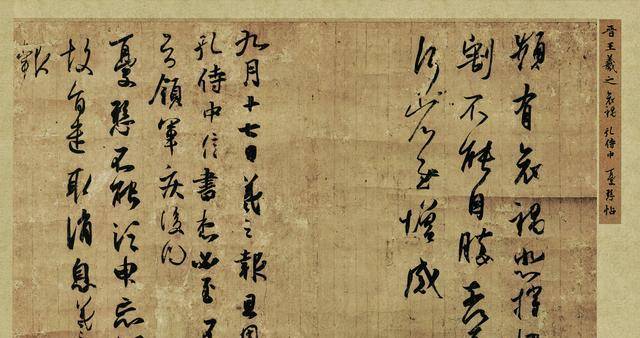 晋王羲之 哀禍 孔侍中 憂懸帖
頻有哀禍悲摧
割不能自勝奈
何省慰增感
九月十七日羲之報且因
孔侍中信書想必至不
知領軍疾後問
憂懸不能須臾忘
故旨遣取消息羲之
報